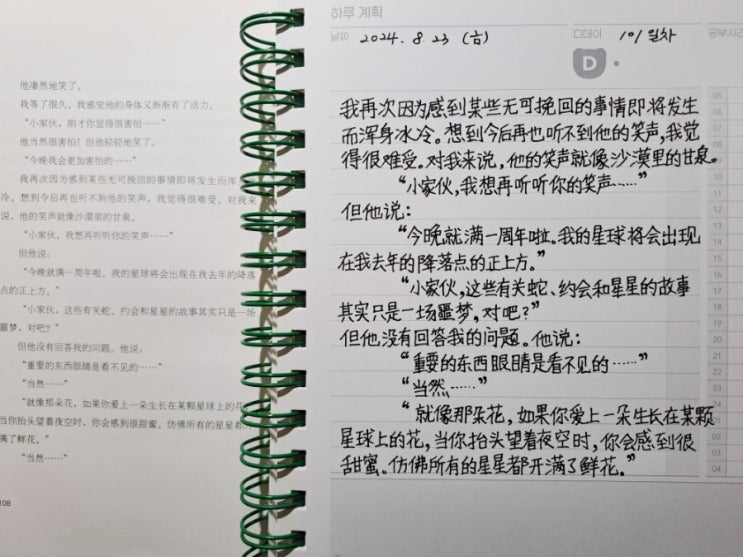 他凄然地笑了。
我等了很久，我感觉他的身体又渐渐有了活力。
“小家伙，刚才你显得很害怕……”
他当然很害怕！但他轻轻地笑了。
“今晚我会更加害怕的……”
我再次因为感到某些无可挽回的事情即将发生而浑
冷。想到今后再也听不到他的笑声，我觉得很难受。对我来
说，他的笑声就像沙漠里的甘泉。
“小家伙，我想再听听你的笑声……”
但他说：
“今晚就满一周年啦。我的星球将会出现在我去年的降落
点的正上方。”
“小家伙，这些有关蛇、约会和星星的故事其实只是一场
噩梦，对吧？”
但他没有回答我的问题。他说：
“重要的东西眼睛是看不见的……”
“当然……”
“就像那朵花，如果你爱上一朵生长在某颗星球上的花
当你抬头望着夜空时，你会感到很甜蜜。仿佛所有的星星都
满了鲜花。”
“当然……”
108
하루 계획
날짜 2024. 8 23 (금)
디데이 101일차
공부시간
D
我再次因为感到某些无可挽回的事情即将发生
而浑身冰冷。想到今后再也听不到他的笑声,我觉
得很难受。对我来说,他的笑声就像沙漠里的甘泉。
“小家伙,我想再听听你的笑声……”
但他说：
“今晚就满一周年啦。我的星球将会出现
在我去年的降落点的正上方。”
“小家伙,这些有关蛇、约会和星星的故事
其实只是一场噩梦,对吧?”
但他没有回答我的问题。他说：
“重要的东西眼睛是看不见的……”
“当然……”
“就像那朵花,如果你爱上一朵生长在某颗
星球上的花,当你抬头望着夜空时,你会感到很
甜蜜。仿佛所有的星星都开满了鲜花。”
05
06
07
08
09
10
11
12
13
14
15
16
17
18
19
20
21
22
23
24
01
02
03
04